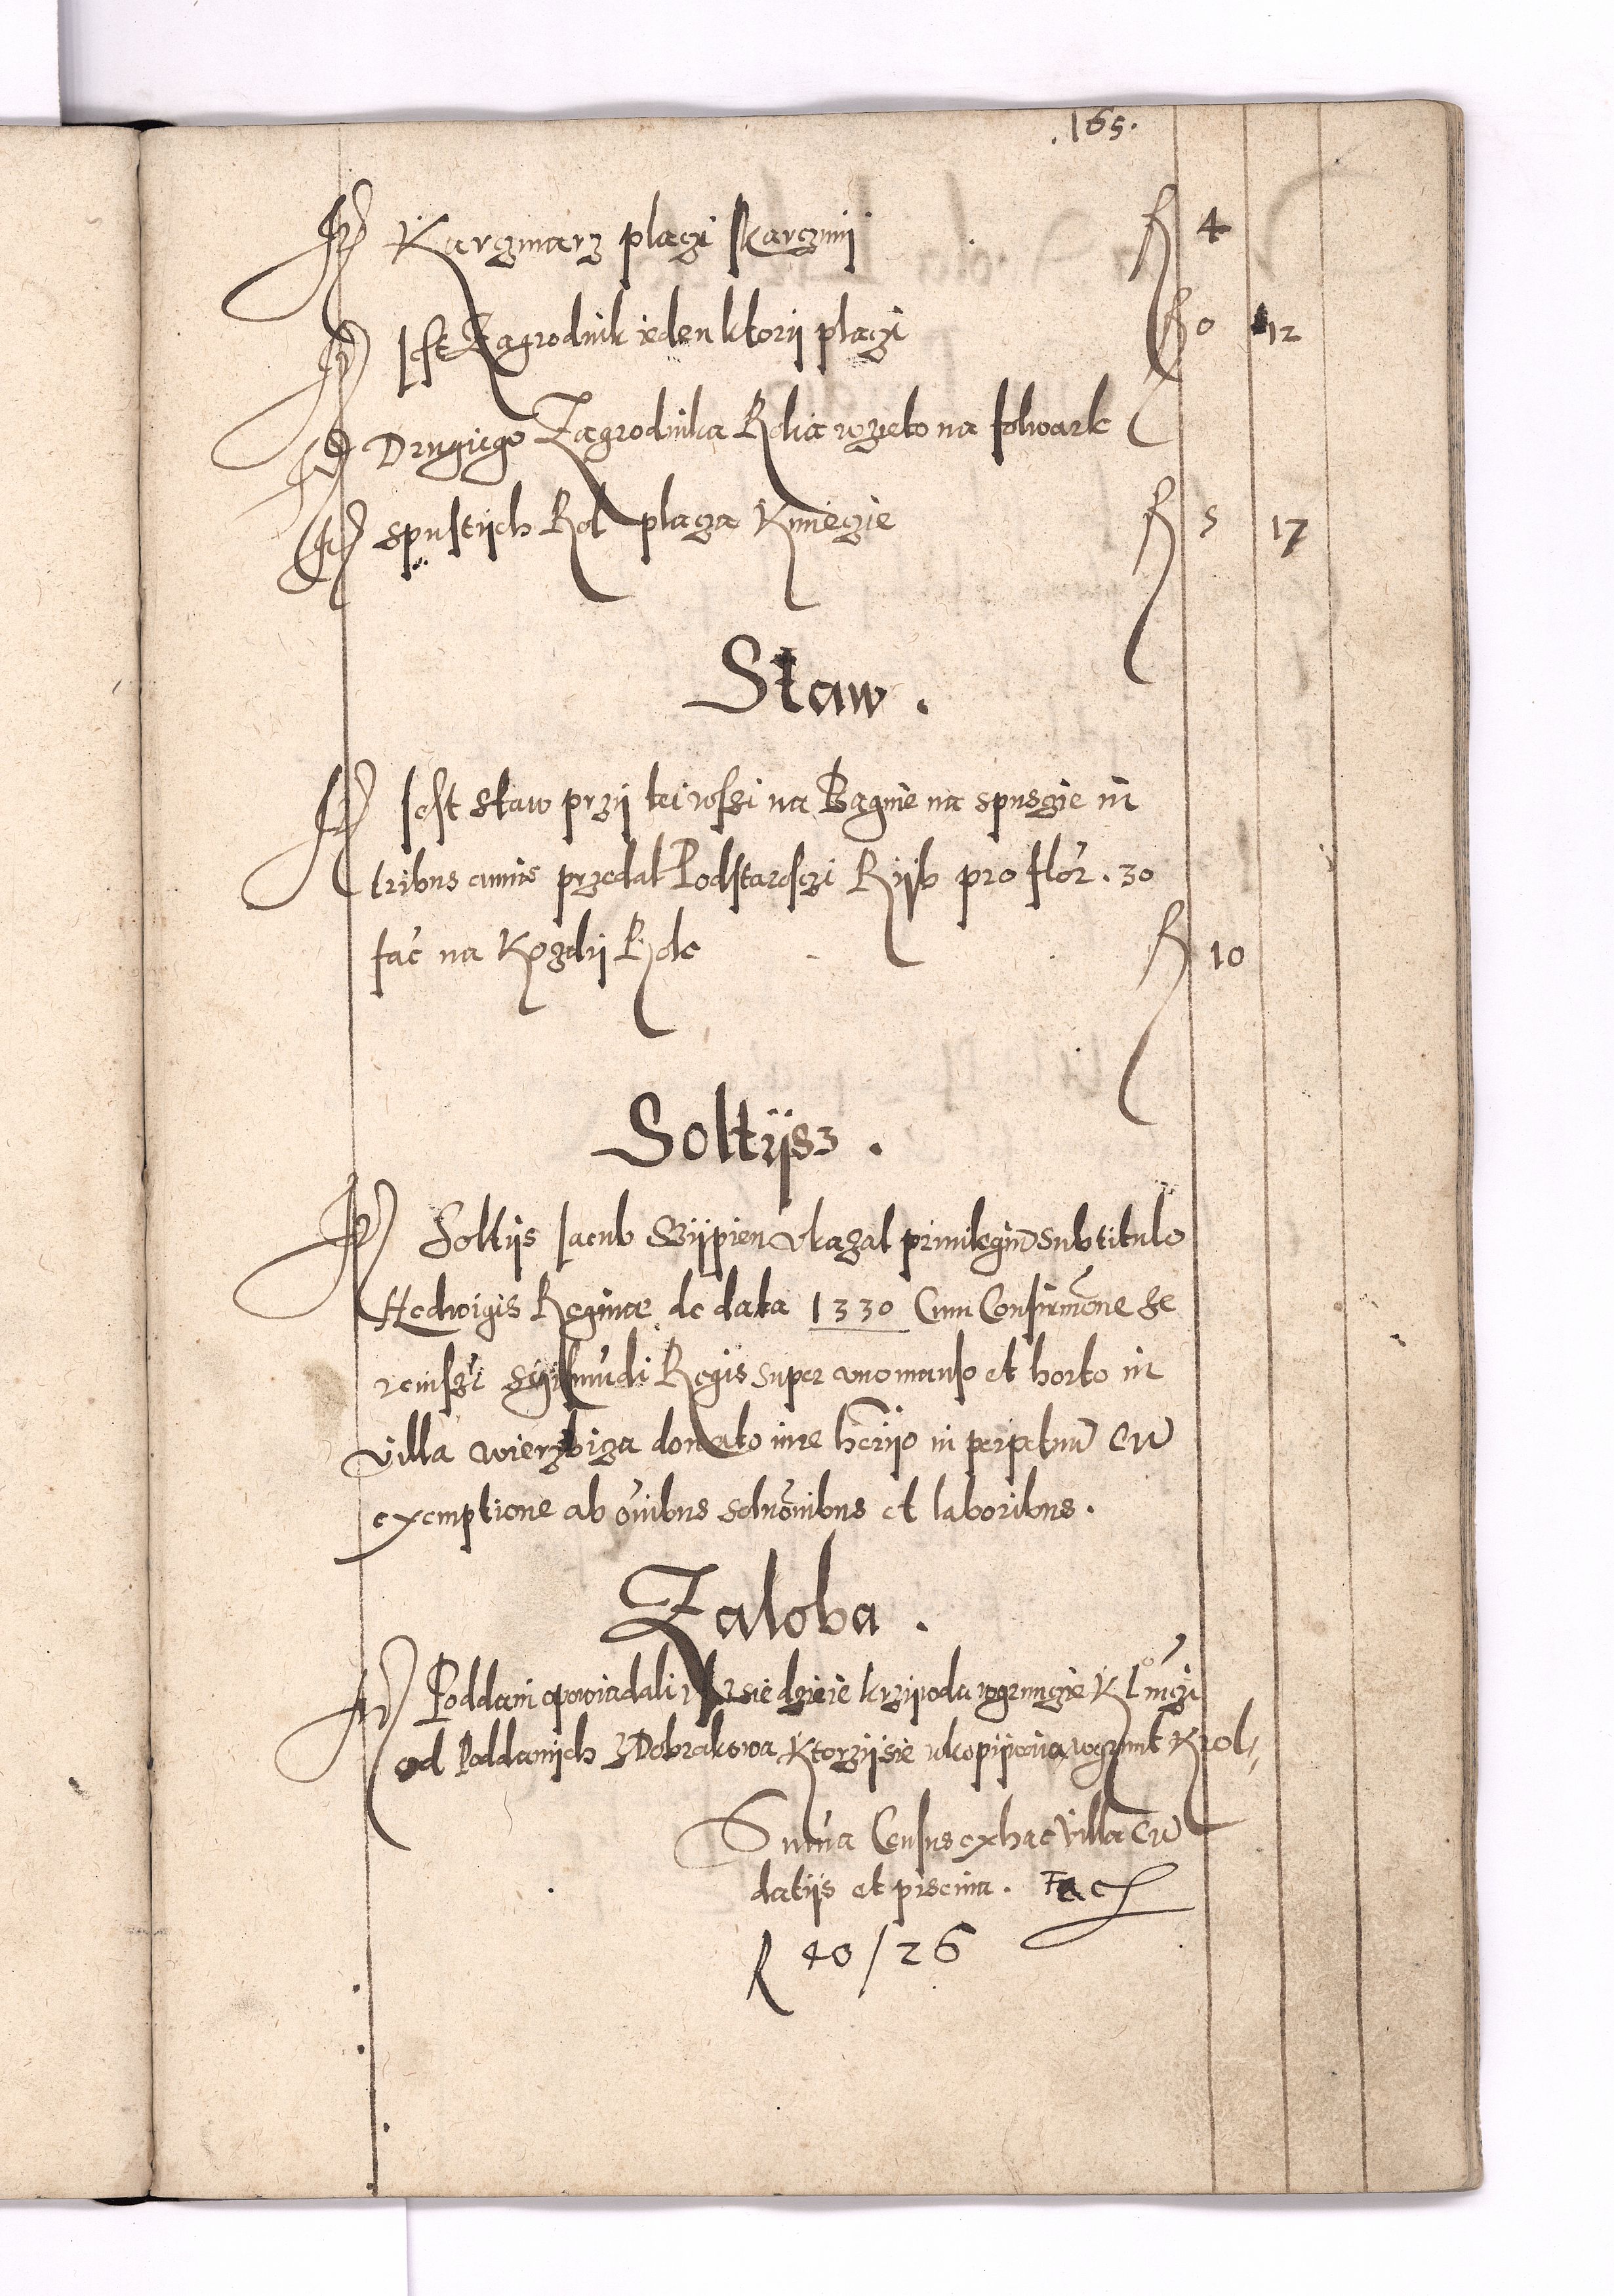 .165.
It Karczmarz placzi skarczmij fl 4
It Jest Zagrodnik ieden ktorij placzi fl 0 12
It Drugiego Zagrodnika Rolia wzieto na folwark
It spustijch Rol placza Kmieczie fl 5 17
Staw .
It Jest staw przij tei wssi na Bagnie na spusczie in
tribus annis przedal Podstarosczi Rijb pro flor . 30
fac na Kozdij Rok fl 10
Soltijsz .
It Soltijs Jacub Wijpien vkazal priuilegiu subtitulo
Hedwigis Reginae de data 1330 Cum Confirmone Se
renissi Sijismudi Regis super vno manso et horto in
villa wierzbiza donato iure herijo in perpetuu Cu
exemptione ab oibus soluonibus et laboribus .
Zaloba .
It Poddani opowiadali sie dzieie krzijwda wgrunczie K
od Poddanijch zDobrakowa Ktorzijsie vkopijwaia wgrunt Krol
Suma Census exhac villa Cu
datijs et piscina . Fac
fl 40/26